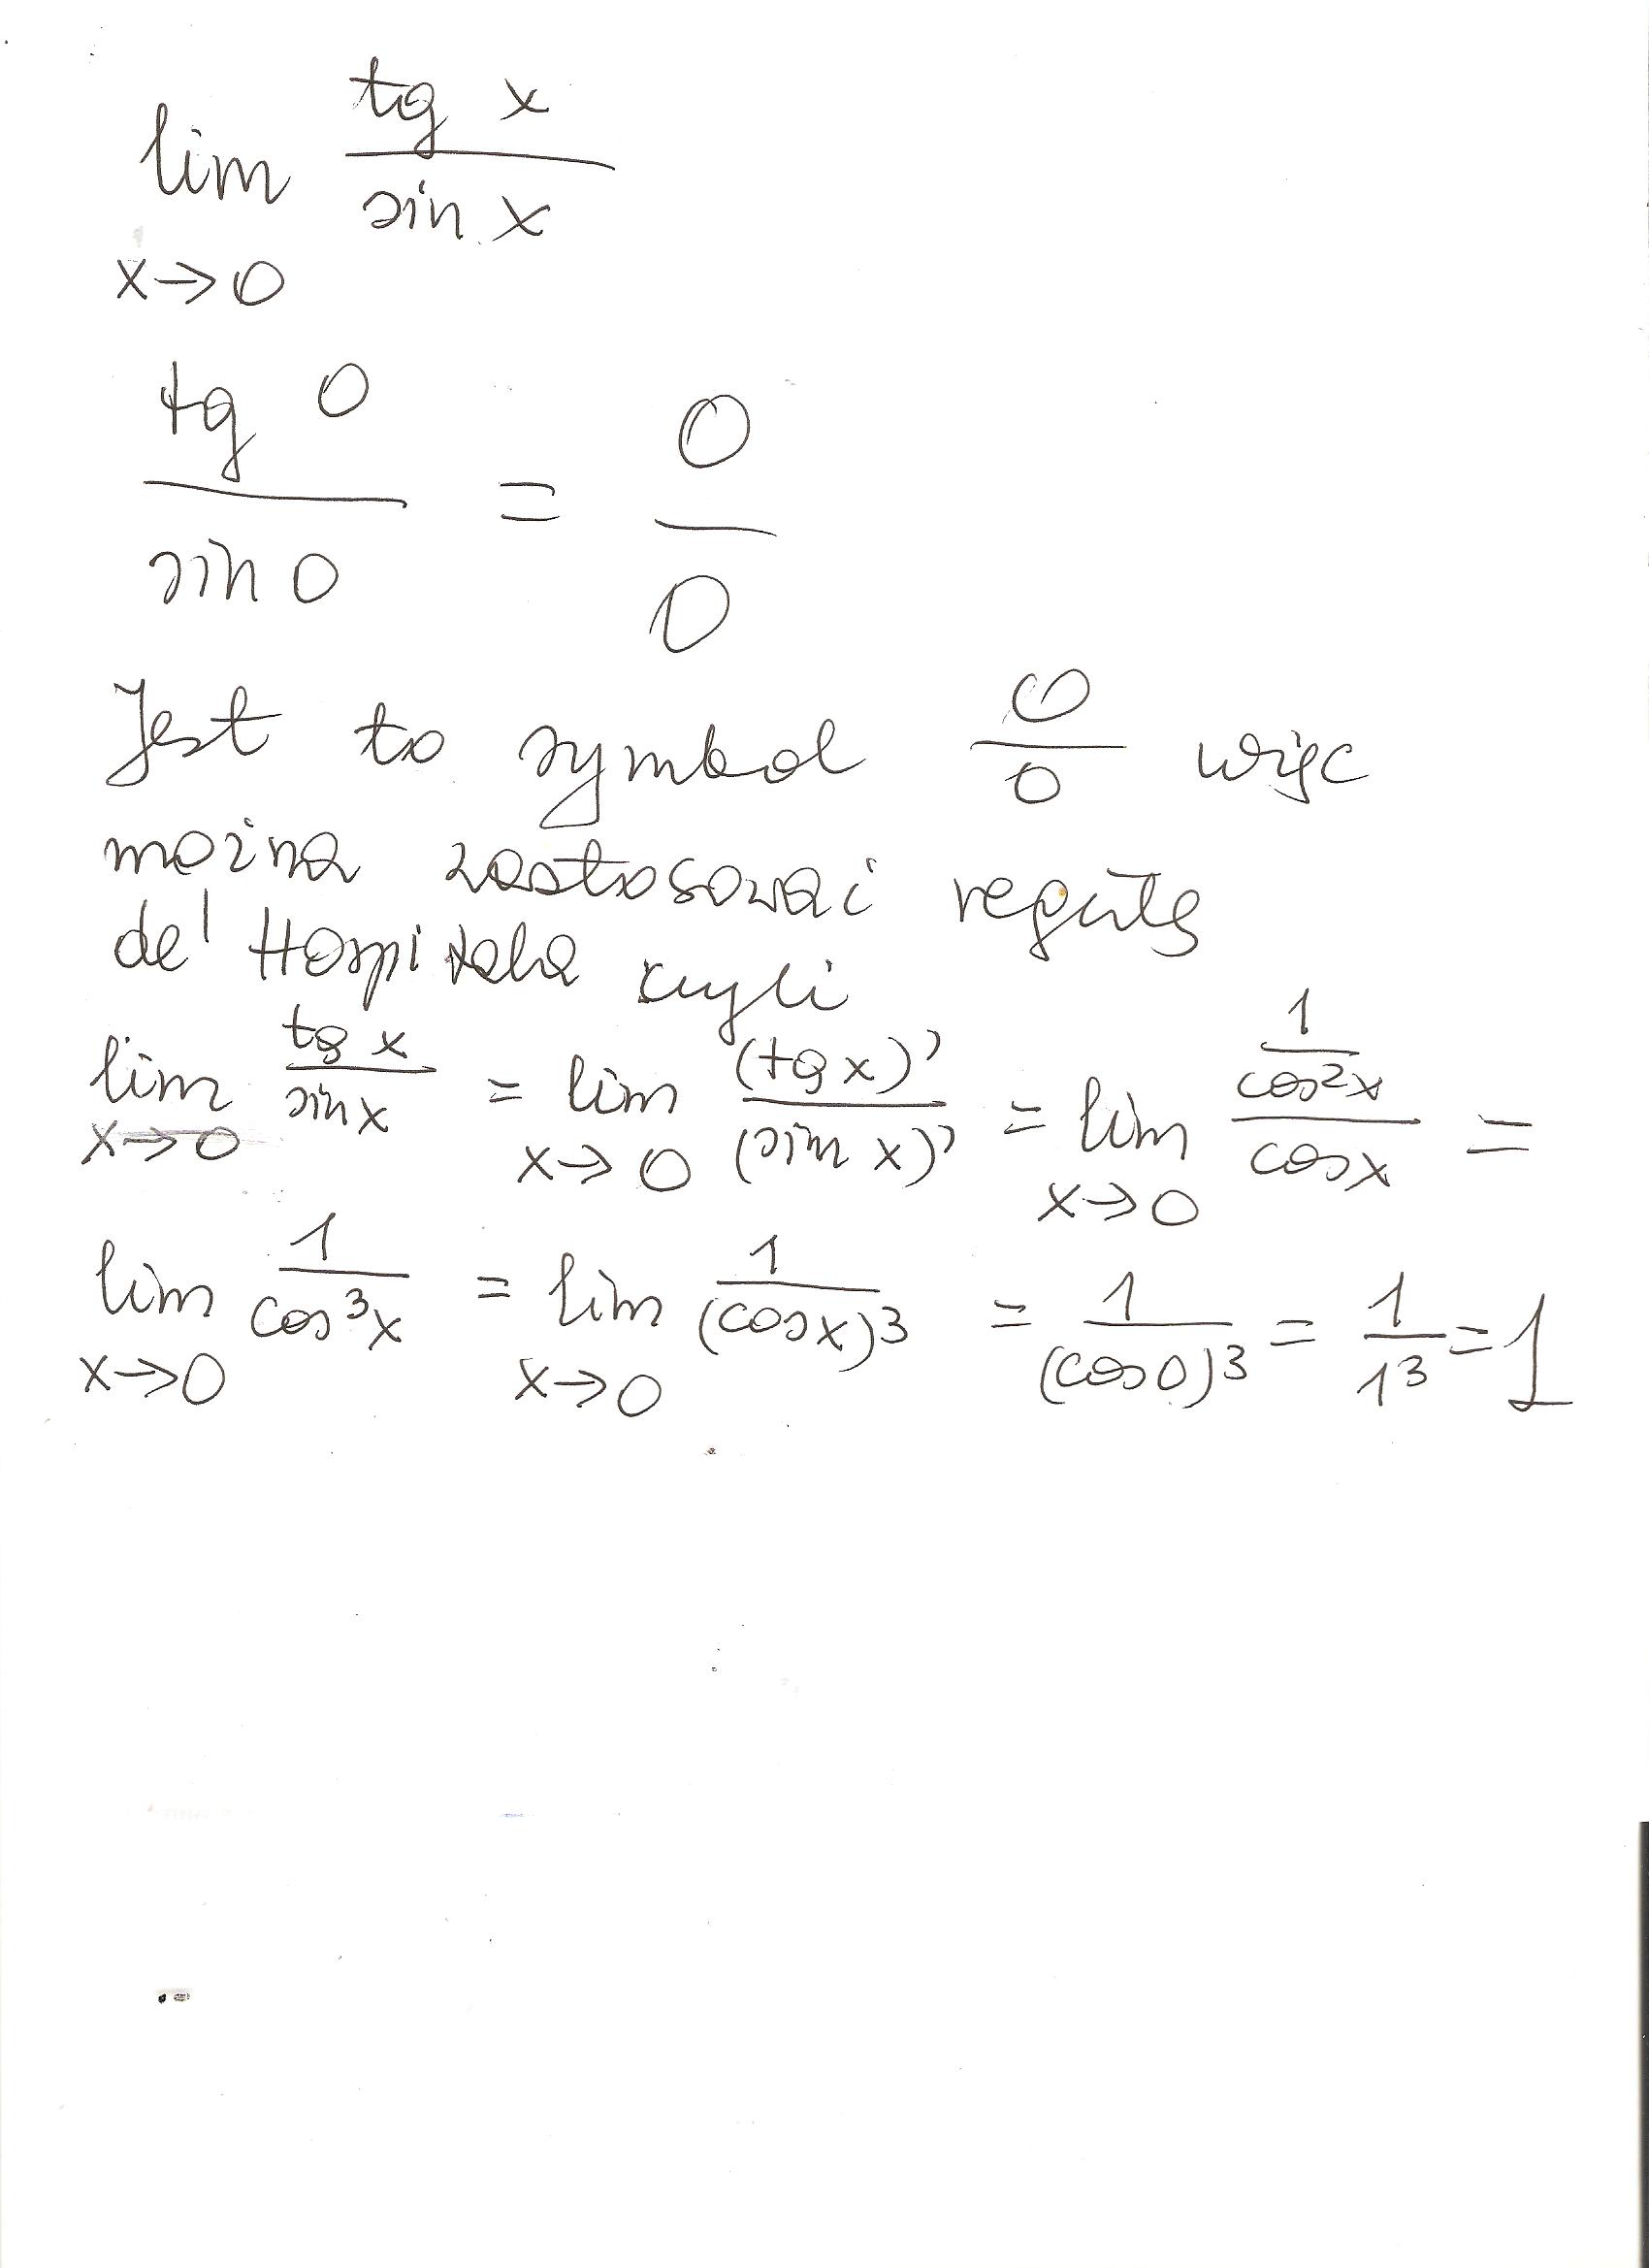 lim tg x / sin x
x→0
tg 0 / sin 0 = 0 / 0
Jest to symbol 0/0 więc
można zastosować regułę
de' Hospitala czyli
lim x→0 tg x / sin x = lim x→0 (tg x)' / (sin x)' = lim x→0 (1 / cos²x) / cos x =
lim x→0 1 / cos³x = lim x→0 1 / (cos x)³ = 1 / (cos 0)³ = 1 / 1³ = 1